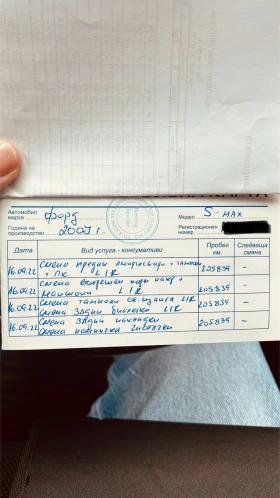 Автомобил марка Форд Модел S-MAX
Година на производство 2007 г. Регистрационен номер
Дата Вид услуга - консумативи Пробег км. Следваща смяна
16.09.22 Смяна предни амортисьори + тампони
+ ПК L/R 205839 -
Смяна вътрешен
16.09.22 маншони L/R 205839 -
16.09.22 Смяна тампони ст. щанга L/R 205839 -
Смяна задни биалетки L/R
16.09.22 Смяна задни накладки 205839 -
Смяна